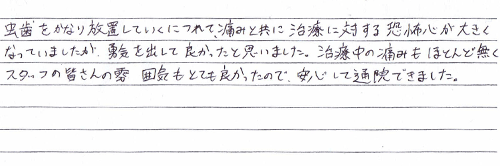 虫歯をかなり放置していくにつれて、痛みと共に治療に対する恐怖心が大きく
なっていましたが、勇気を出して良かったと思いました。治療中の痛みもほとんど無く
スタッフの皆さんの雰囲気もとても良かったので、安心して通院できました。